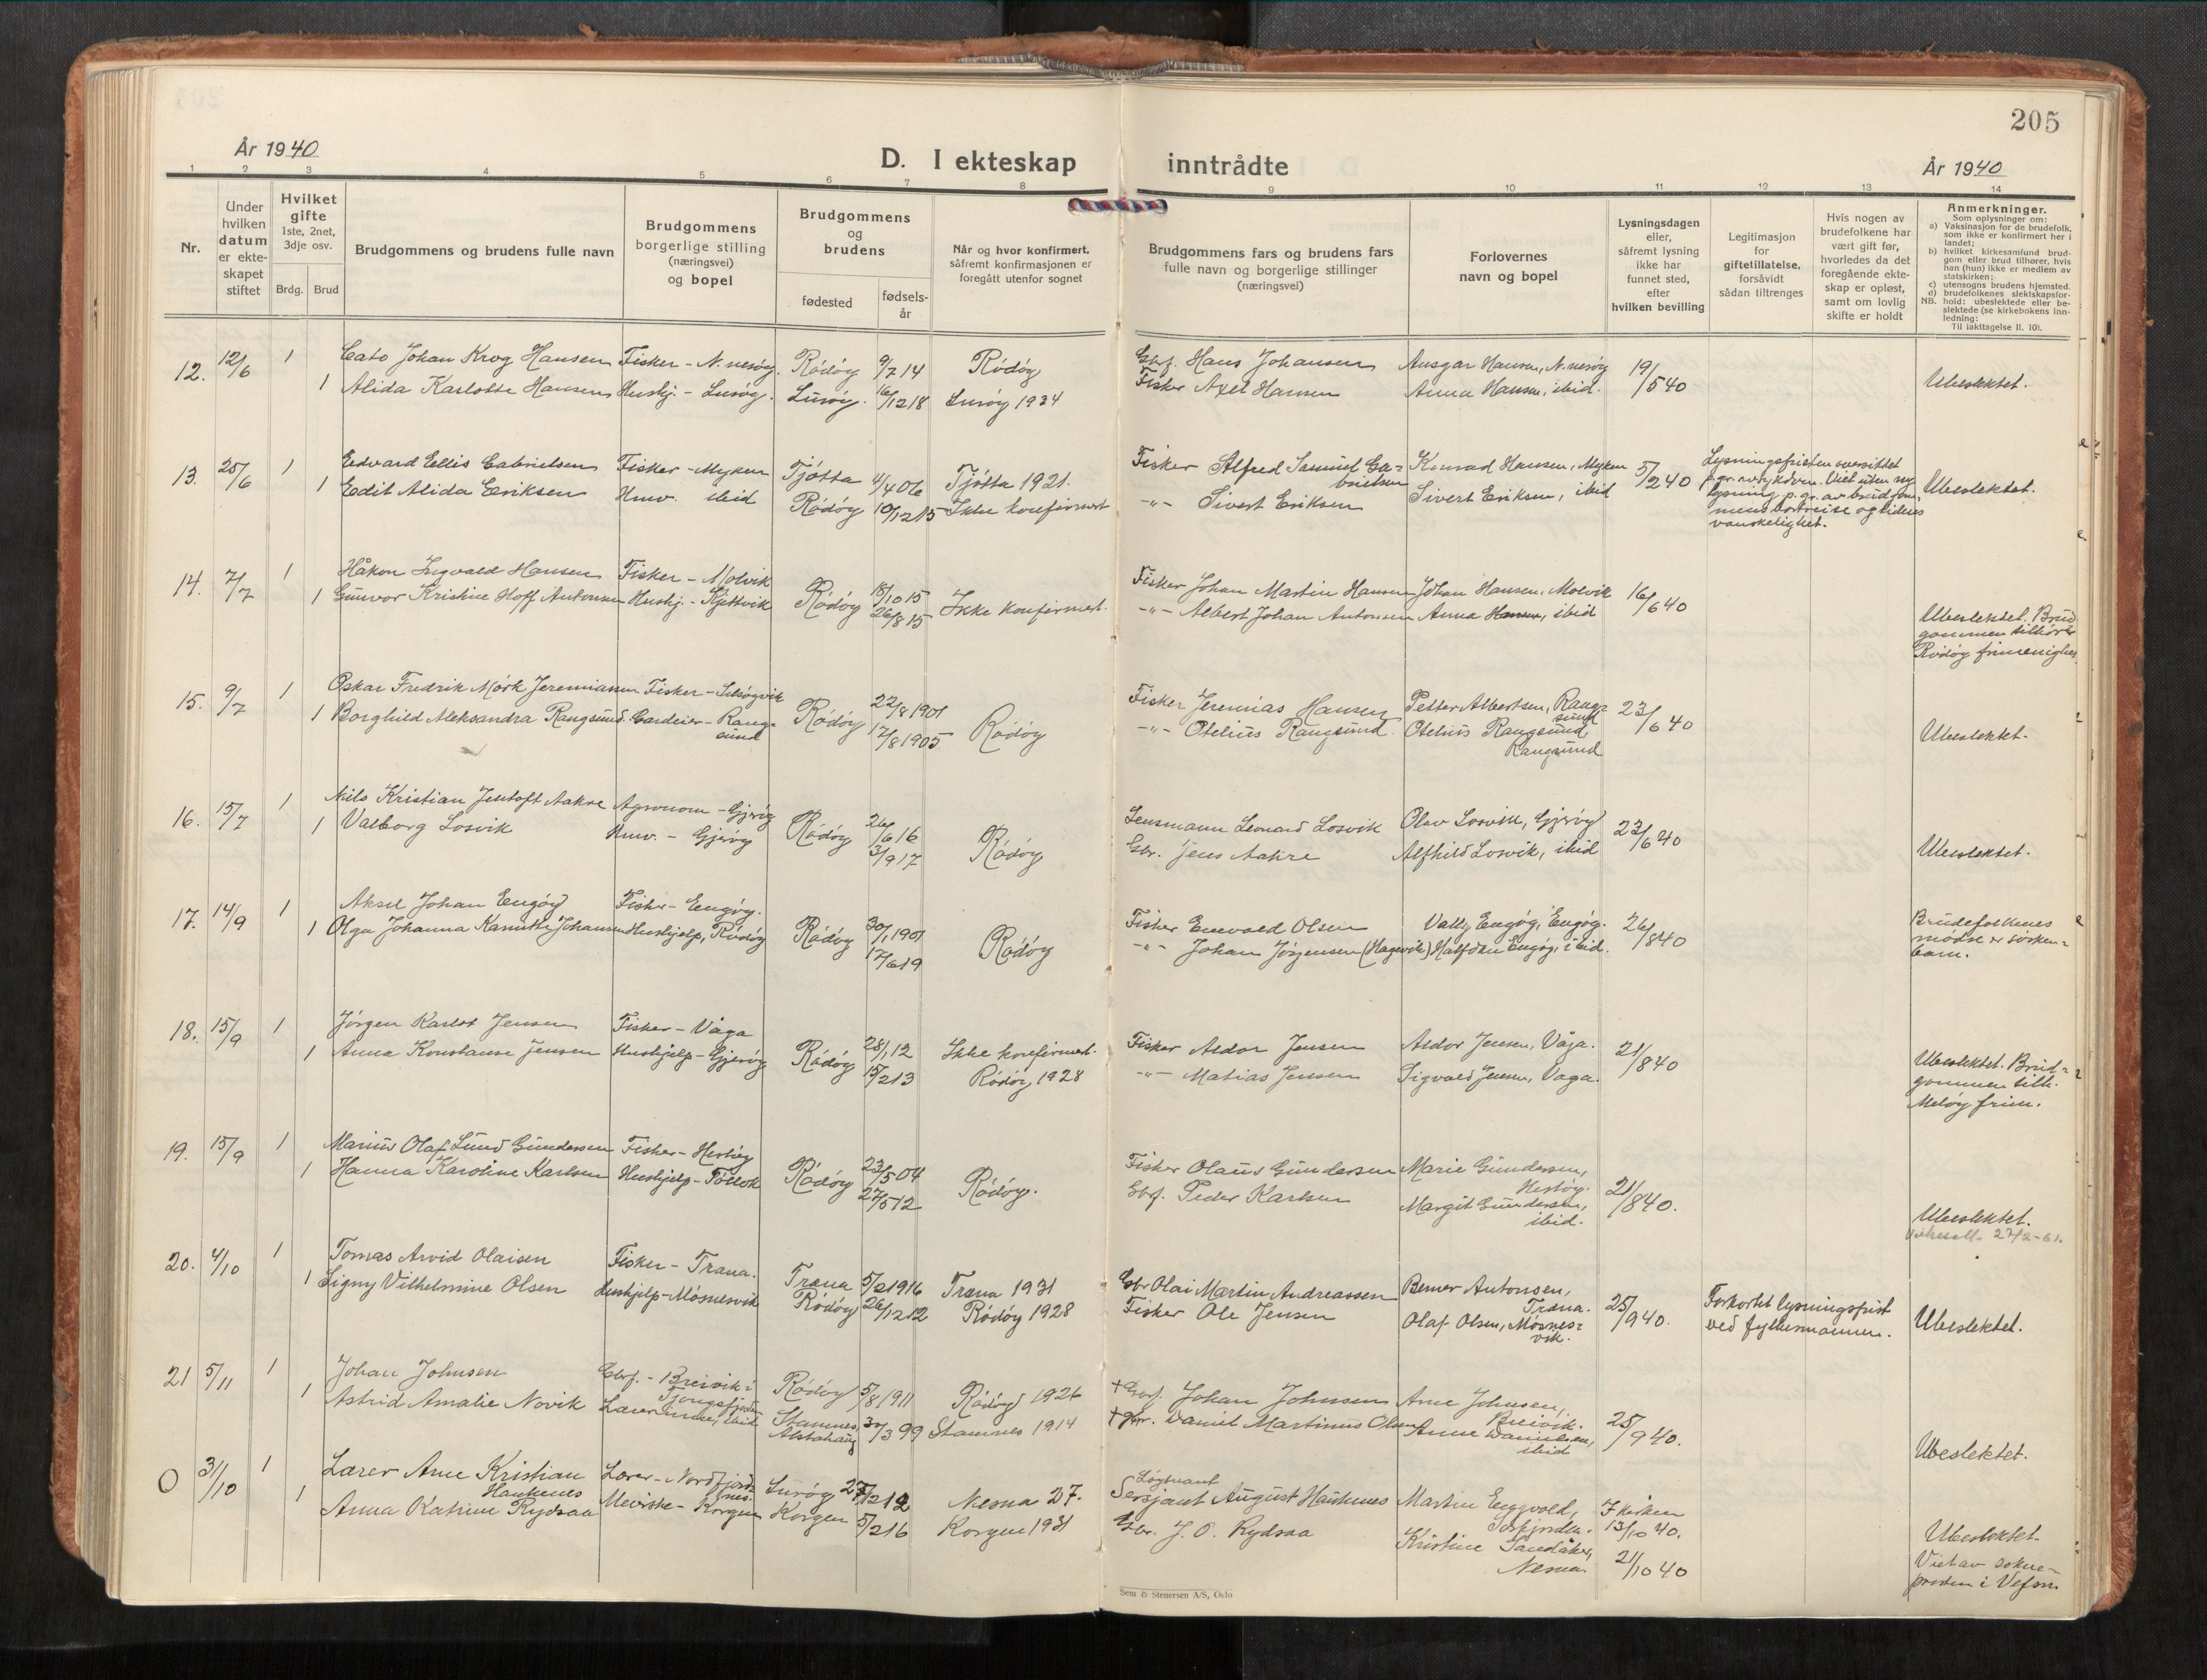 205
År 1940
D. I ekteskap inntrådte
År 1940
1 2 3 4 5 6 7 8 9 10 11 12 13 14
Nr.
Under hvilken datum er ekte-skapet stiftet
Hvilket gifte 1ste, 2net, 3dje osv.
Brdg. Brud
Brudgommens og brudens fulle navn
Brudgommens borgerlige stilling (næringsvei) og bopel
Brudgommens og brudens
fødested
fødsels-år
Når og hvor konfirmert, såfremt konfirmasjonen er foregått utenfor sognet
Brudgommens fars og brudens fars fulle navn og borgerlige stillinger (næringsvei)
Forlovernes navn og bopel
Lysningsdagen eller, såfremt lysning ikke har funnet sted, efter hvilken bevilling
Legitimasjon for giftetillatelse, forsåvidt sådan tiltrenges
Hvis nogen av brudefolkene har vært gift før, hvorledes da det foregående ekte-skap er opløst, samt om lovlig skifte er holdt
Anmerkninger.
Som oplysninger om:
a) Vaksinasjon for de brudefolk, som ikke er konfirmert her i landet;
b) hvilket kirkesamfund brud-gom eller brud tilhører, hvis han (hun) ikke er medlem av statskirken;
c) utensogns brudens hjemsted.
d) brudefolkenes slektskapsfor-hold: ubeslektede eller be-slektede (se kirkebokens inn-ledning:
NB.
Til iakttagelse II. 10).
12. 12/6 1 Cato Johan Krog Hansen Fisker - N.nesøy. Rödöy 9/7 14 Rödöy Gbf. Hans Johansen Ansgar Hansen, N.nesøy 19/5 40
1 Alida Karlotte Hansen Hushj. - Lurøy. Lurøy. 16/12 18 Lurøy 1934 Fisker Axel Hansen Anna Hansen, ibid. Ubeslektet.
13. 25/6 1 Edvard Ellis Gabrielsen Fisker - Myken Tjötta 4/4 06 Tjötta 1921. Fisker Alfred Samuel Ga=brielsen Konrad Hansen, Myken 5/2 40
1 Edit Alida Eriksen Hmv. ibid Rödöy 10/12 15 Ikke konfirmert -"- Sivert Eriksen Sivert Eriksen, ibid Ubeslektet.
Lysningsfristen oversittet
p.gr. av sykdom. Viet uten ny
lysning p.gr. av brudgom
mens bortreise og tidens
vanskelighet.
14. 7/7 1 Håkon Ingvald Hansen Fisker - Molvik Rödöy 18/10 15 Ikke konfirmert. Fisker Johan Martin Hansen Johan Hansen, Molvik 16/6 40
1 Gunvor Kristine Hoff Antonsen Hushj. - Kjettvik 26/8 15 -"- Albert Johan Antonsen Anna Hansen, ibid
Ubeslektet. Brud
gommen tilhører
Rödöy frimenighet.
15. 9/7 1 Oskar Fredrik Mörk Jeremiassen Fisker - Selsøyvik Rödöy 22/8 1901 Rödöy Fisker Jeremias Hansen Petter Albertsen, Rang=sund 23/6 40
1 Borghild Aleksandra Rangsund Gardeier - Rang=sund 17/8 1905 -"- Otelius Rangsund Otelius Rangsund, Rangsund Ubeslektet.
16. 15/7 1 Nils Kristian Jentoft Aakre Agronom - Gjerøy Rödöy 26/6 16 Rödöy Lensmann Leonard Losvik Olav Losvik, Gjerøy 23/6 40
1 Valborg Losvik Hmv. - Gjerøy 3/9 17 Gbr. Jens Aakre Alfhild Losvik, ibid Ubeslektet.
17. 14/9 1 Aksel Johan Engöy Fisker - Engöy. Rödöy 30/1 1901 Rödöy Fisker Enevold Olsen Vally Engöy, Engöy. 26/8 40
1 Olga Johanna Kanutte Johansen Hushjelp, Rödöy 17/6 19 -"- Johan Jörgensen (Hagevik) Halfdan Engöy, ibid.
Brudefolkenes
mødre er søsken=
barn.
18. 15/9 1 Jörgen Karlot Jensen Fisker - Våga Rödöy 28/1 12 Ikke konfirmert. Fisker Aldor Jensen Aldor Jensen, Våga. 21/8 40
1 Anna Konstanse Jensen Hushjelp - Gjerøy 15/2 13 Rödöy 1928 -"- Matias Jensen Sigvald Jensen, Våga.
Ubeslektet. Brud=
gommen tilh.
Meløy frim.
19. 15/9 1 Marius Olaf Lund Gundersen Fisker - Hestöy Rödöy 23/5 04 Rödöy. Fisker Olaus Gundersen Marie Gundersen, Hestöy. 21/8 40.
1 Hanna Karoline Karlsen Hushjelp - Tollok 27/5 12 Gbf. Peder Karlsen Margit Gundersen, ibid.
Ubeslektet.
27/2-61.
20. 4/10 1 Tomas Arvid Olaisen Fisker - Træna. Træna 5/2 1916 Træna 1931 Gbr Olai Martin Andreassen Berner Antonsen, Træna. 25/9 40.
1 Signy Vilhelmine Olsen Hushjelp - Mösnesvik Rödöy 26/12 12 Rödöy 1928 Fisker Ole Jensen Olaf Olsen, Mösnes=vik.
Forkortet lysningsfrist
ved fylkesmannen.
Ubeslektet.
21 5/11 1 Johan Johnsen Gbf. - Breivik i Tjongsfjord Rödöy 5/8 1911 Rödöy 1926 † Gbf. Johan Johnsen Arne Johnsen, Breivik. 25/9 40.
1 Astrid Amalie Novik Lærerinne, ibid Stamnes, Alstahaug 30/3 99 Stamnes 1914 † Gbr. Daniel Martinus Olsen Anne Danielsen, ibid Ubeslektet.
0 31/10 1 Lærer Arne Kristian Haukenes Lærer - Nordfjordnes. Lurøy 27/2 12 Nesna 27. Løytnant Sersjant August Haukenes Martin Enggvold, I kirken 13/10 40.
1 Anna Katrine Rydsaa Meierske - Korgen Korgen 5/2 16 Korgen 1931 Gbr. J. O. Rydsaa Kristine Sandåker, Nesna 21/10 40
Ubeslektet.
Viet av sokne-
presten i Vefsn
Sem & Stenersen A/S, Oslo